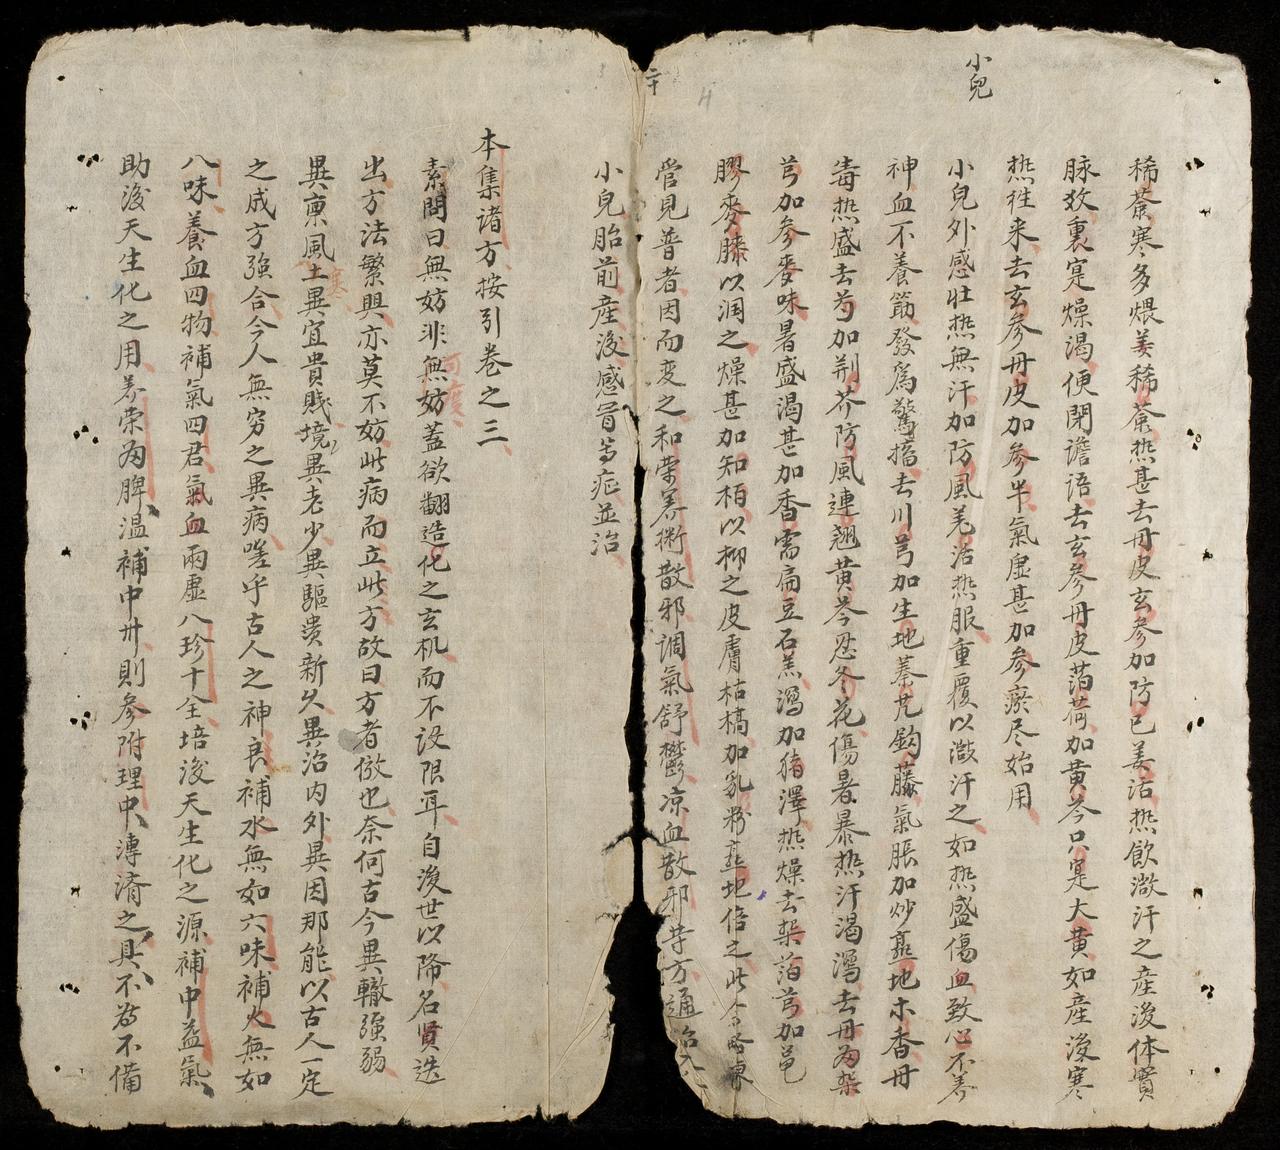 小兒
稀薟寒多煨姜稀薟热甚去丹皮玄参加防已羌活热飲溦汗之産後体實
脉数裏寔燥渴便閉譫语去玄参丹皮薄荷加黄芩只寔大黄如産後寒
热徃来去玄参丹皮加参半氣虚甚加参瘀尽始用
小兒外感壮热無汗加防風羌活热服重覆以溦汗之如热盛傷血致心不养
神血不養筋發為驚搐去川芎加生地秦艽鈎藤氣脹加炒熟地木香丹
毒热盛去芍加荆芥防風連翘黄芩忍冬花傷暑暴热汗渴瀉去丹為柴
芎加参麥味暑盛渴甚加香需扁豆石羔瀉加猪澤热燥去柴萡芎加
膠麥膝以润之燥甚加知栢以抑之皮膚枯槁加乳粉熟地倍之此
管見普者因而变之和荣养衛散邪調氣舒鬱凉血散邪苐方通治
小兒胎前産後感冐等症並治
二十
本集诸方按引卷之三
素問曰無妨非無妨盖欲翻造化之玄机而不设限耳自後世以降名賢迭
可度
出方法繁興亦莫不妨此病而立此方故曰方者倣也奈何古今異轍強弱
異禀風土異宜貴賎境異老少異驅贵新久異治内外異因那能以古人一定
寒
之成方強合今人無穷之異病嗟乎古人之神良補水無如六味補火無如
八味養血四物補氣四君氣血兩虚八珍十全培後天生化之源補中益氣
助後天生化之用养荣為脾温補中州則参附理中溥済之具不為不備